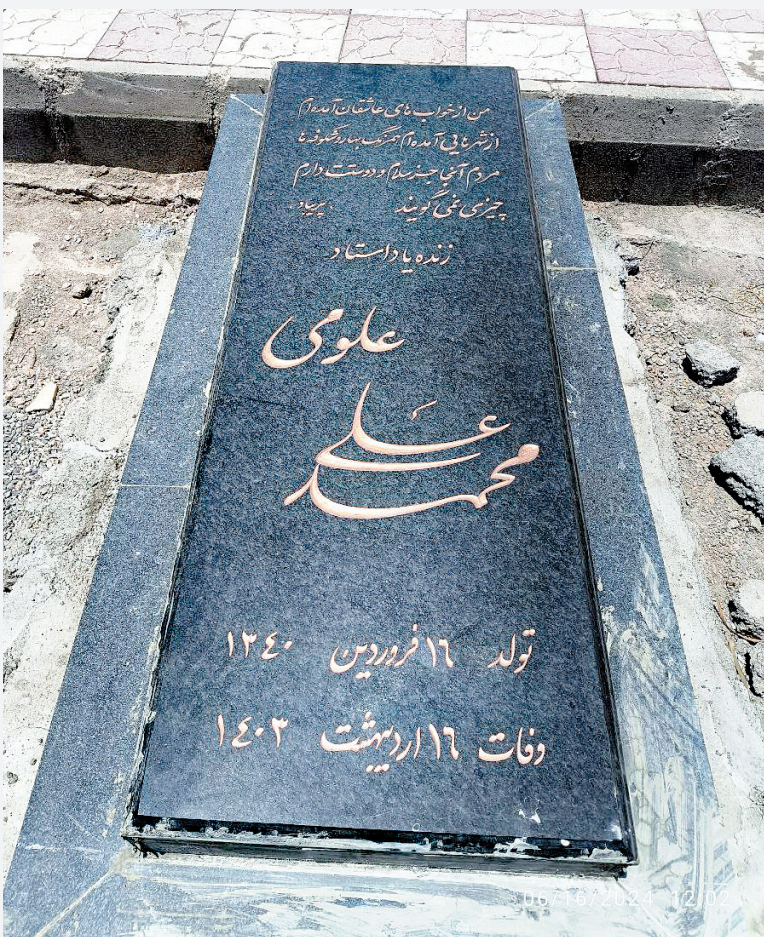 من از خواب های عاشقان آمده ام
از شهرهایی آمده ام همرنگ بهار و شکوفه ها
مردم آنجا جز سلام و دوستت دارم
چیزی نمی گویند . پریباد .
زنده یاد استاد
علومی
محمد علی
تولد ۱۶ فروردین ۱۳۴۰
وفات ۱۶ اردیبهشت ۱۴۰۳
06/16/2024 12:02